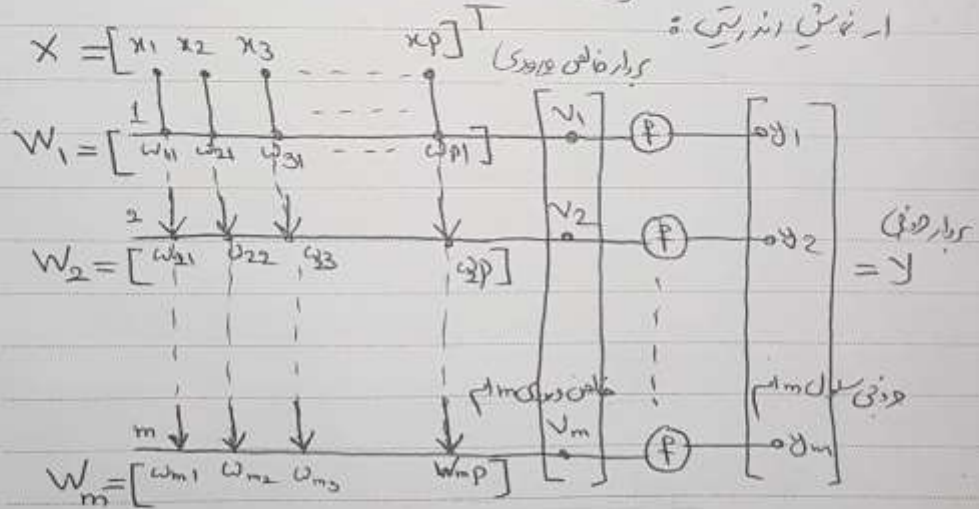 ۱- نمایش دندریتی :
X = [x1 x2 x3 - - - - xp]ᵀ
بردار خالص ورودی
1
W1 = [ω11 ω21 ω31 - - - ωp1] v1 φ y1
2
W2 = [ω21 ω22 ω23 ω2p] v2 φ y2
بردار خروجی
= y
خالص ورودی mام
خروجی سلول mام
m
Wm = [ωm1 ωm2 ωm3 Wmp] vm φ ym